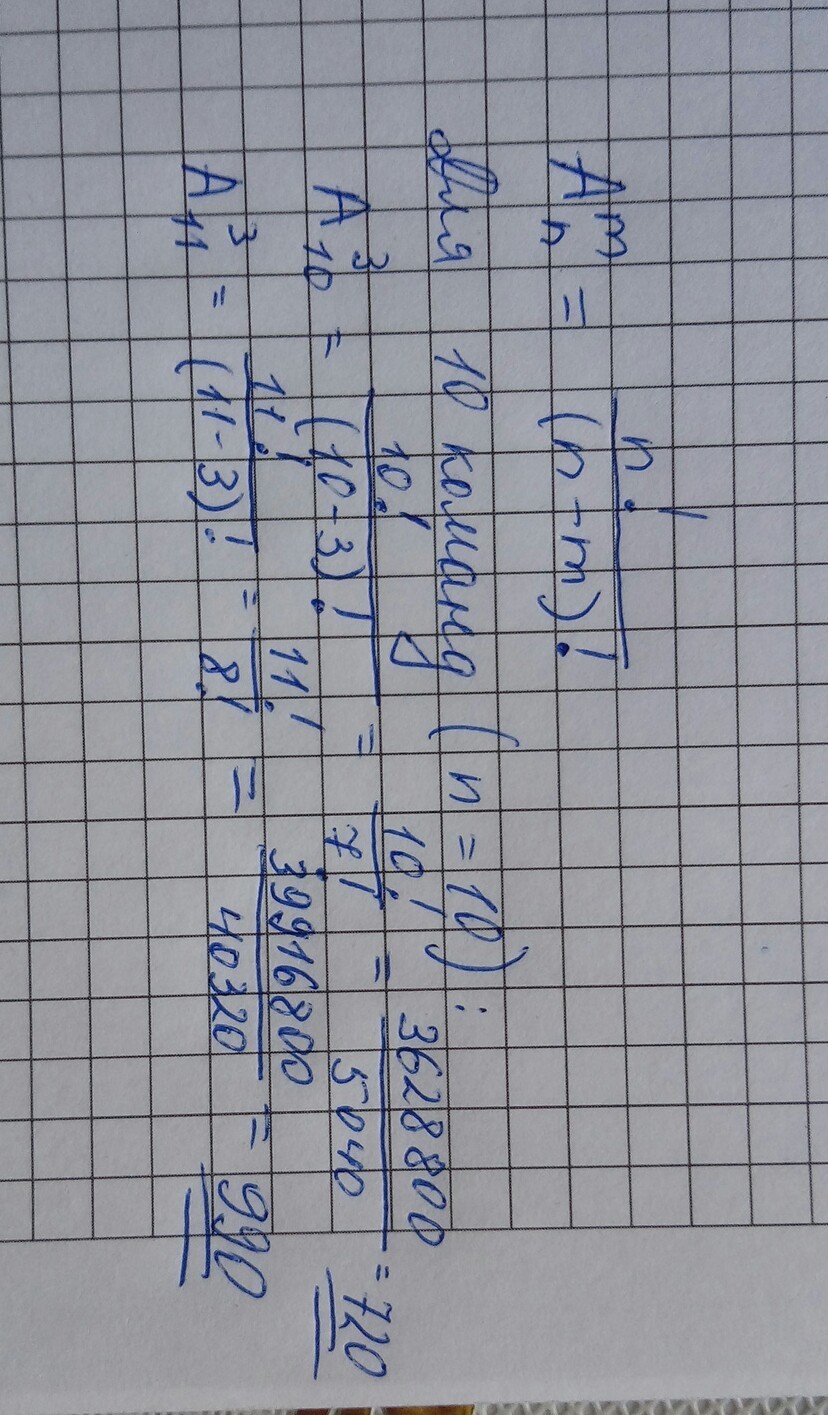 A_n^m = n! / (n-m)!
Для 10 команд (n = 10):
A_10^3 = 10! / (10-3)! = 10! / 7! = 3628800 / 5040 = 720
A_11^3 = 11! / (11-3)! = 11! / 8! = 39916800 / 40320 = 990